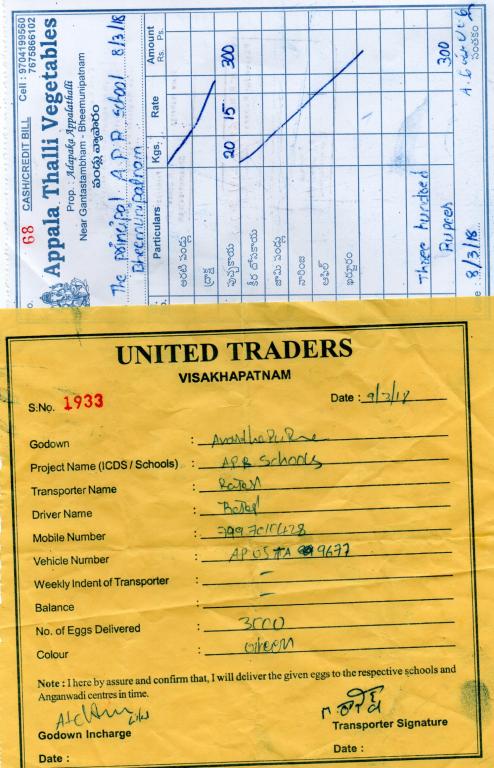 68 CASH/CREDIT BILL Cell : 9704199560
7675866102
Appala Thalli Vegetables
Prop. : Adapaka Appalathalli
Near Gantastambham - Bheemunipatnam
The principal A.P.R School 8/3/18
Bheemunipatnam
Particulars Kgs. Rate Amount
Rs. Ps.
అరటి పండ్లు
ద్రాక్ష
పుచ్చకాయ 20 15 300
కీర దోసకాయ
జామ పండ్లు
నారింజ
ఆపిల్
ఖర్జూరం
Three hundred 300
Rupees
8/3/18
సంతకం
UNITED TRADERS
VISAKHAPATNAM
S.No. 1933 Date : 9/3/18
Godown :
Project Name (ICDS / Schools) : APR Schools
Transporter Name :
Driver Name :
Mobile Number :
Vehicle Number :
Weekly Indent of Transporter : -
Balance : -
No. of Eggs Delivered : 3000
Colour : Green
Note : I here by assure and confirm that, I will deliver the given eggs to the respective schools and
Anganwadi centres in time.
Godown Incharge Transporter Signature
Date : Date :